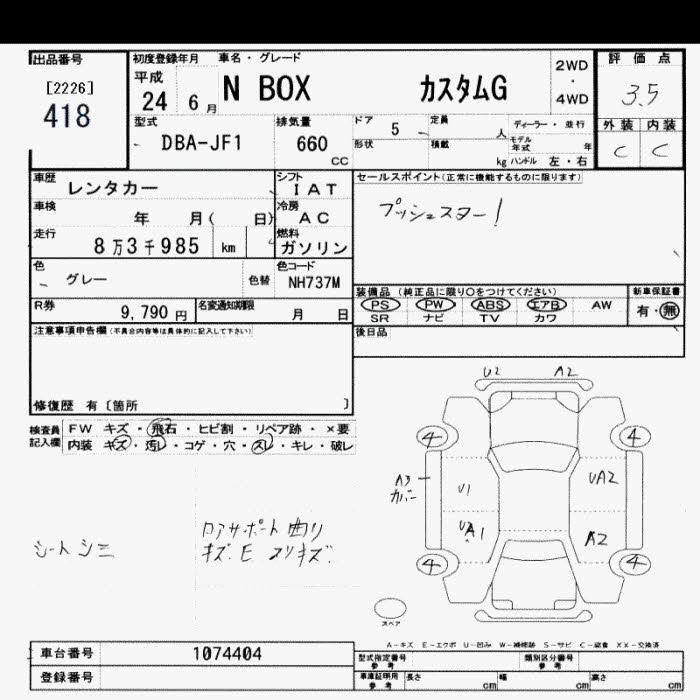 出品番号
[2226]
418
初度登録年月 車名・グレード
平成
24 6月
N BOX カスタムG
2WD
・
4WD
評価点
3.5
外装 内装
C C
型式
DBA-JF1
排気量
660
CC
ドア 5
形状
定員 人
積載 kg
ディーラー・並行
モデル年式 年
ハンドル 左・右
車歴 レンタカー
シフト
IAT
セールスポイント(正常に機能するものに限ります)
プッシュスター!
車検 年 月( 日)
冷房
AC
走行
8万3千985 km
燃料
ガソリン
色 グレー 色替
色コード
NH737M
装備品(純正品に限り○をつけてください)
PS PW ABS エアB AW
SR ナビ TV カワ
新車保証書
有・無
R券 9,790円
名変通知期限 月 日
後日品
注意事項申告欄(不具合内容等は具体的に記入して下さい)
修復歴 有〔箇所 〕
検査員記入欄
FW キズ・飛石・ヒビ割・リペア跡・×要
内装 キズ・汚レ・コゲ・穴・スレ・キレ・破レ
U2 A2
4 4
A3
カバー
U1 UA2
A1 A2
4 4
スペア
シート シミ
ロアサポート曲り
キズ.E スリキズ.
A-キズ E-エクボ U-凹み W-補修跡 S-サビ C-腐食 XX-交換済
車台番号 1074404
登録番号
型式指定番号
参考
類別区分番号
参考
車庫証明用
参考
長さ cm 幅 cm 高さ cm